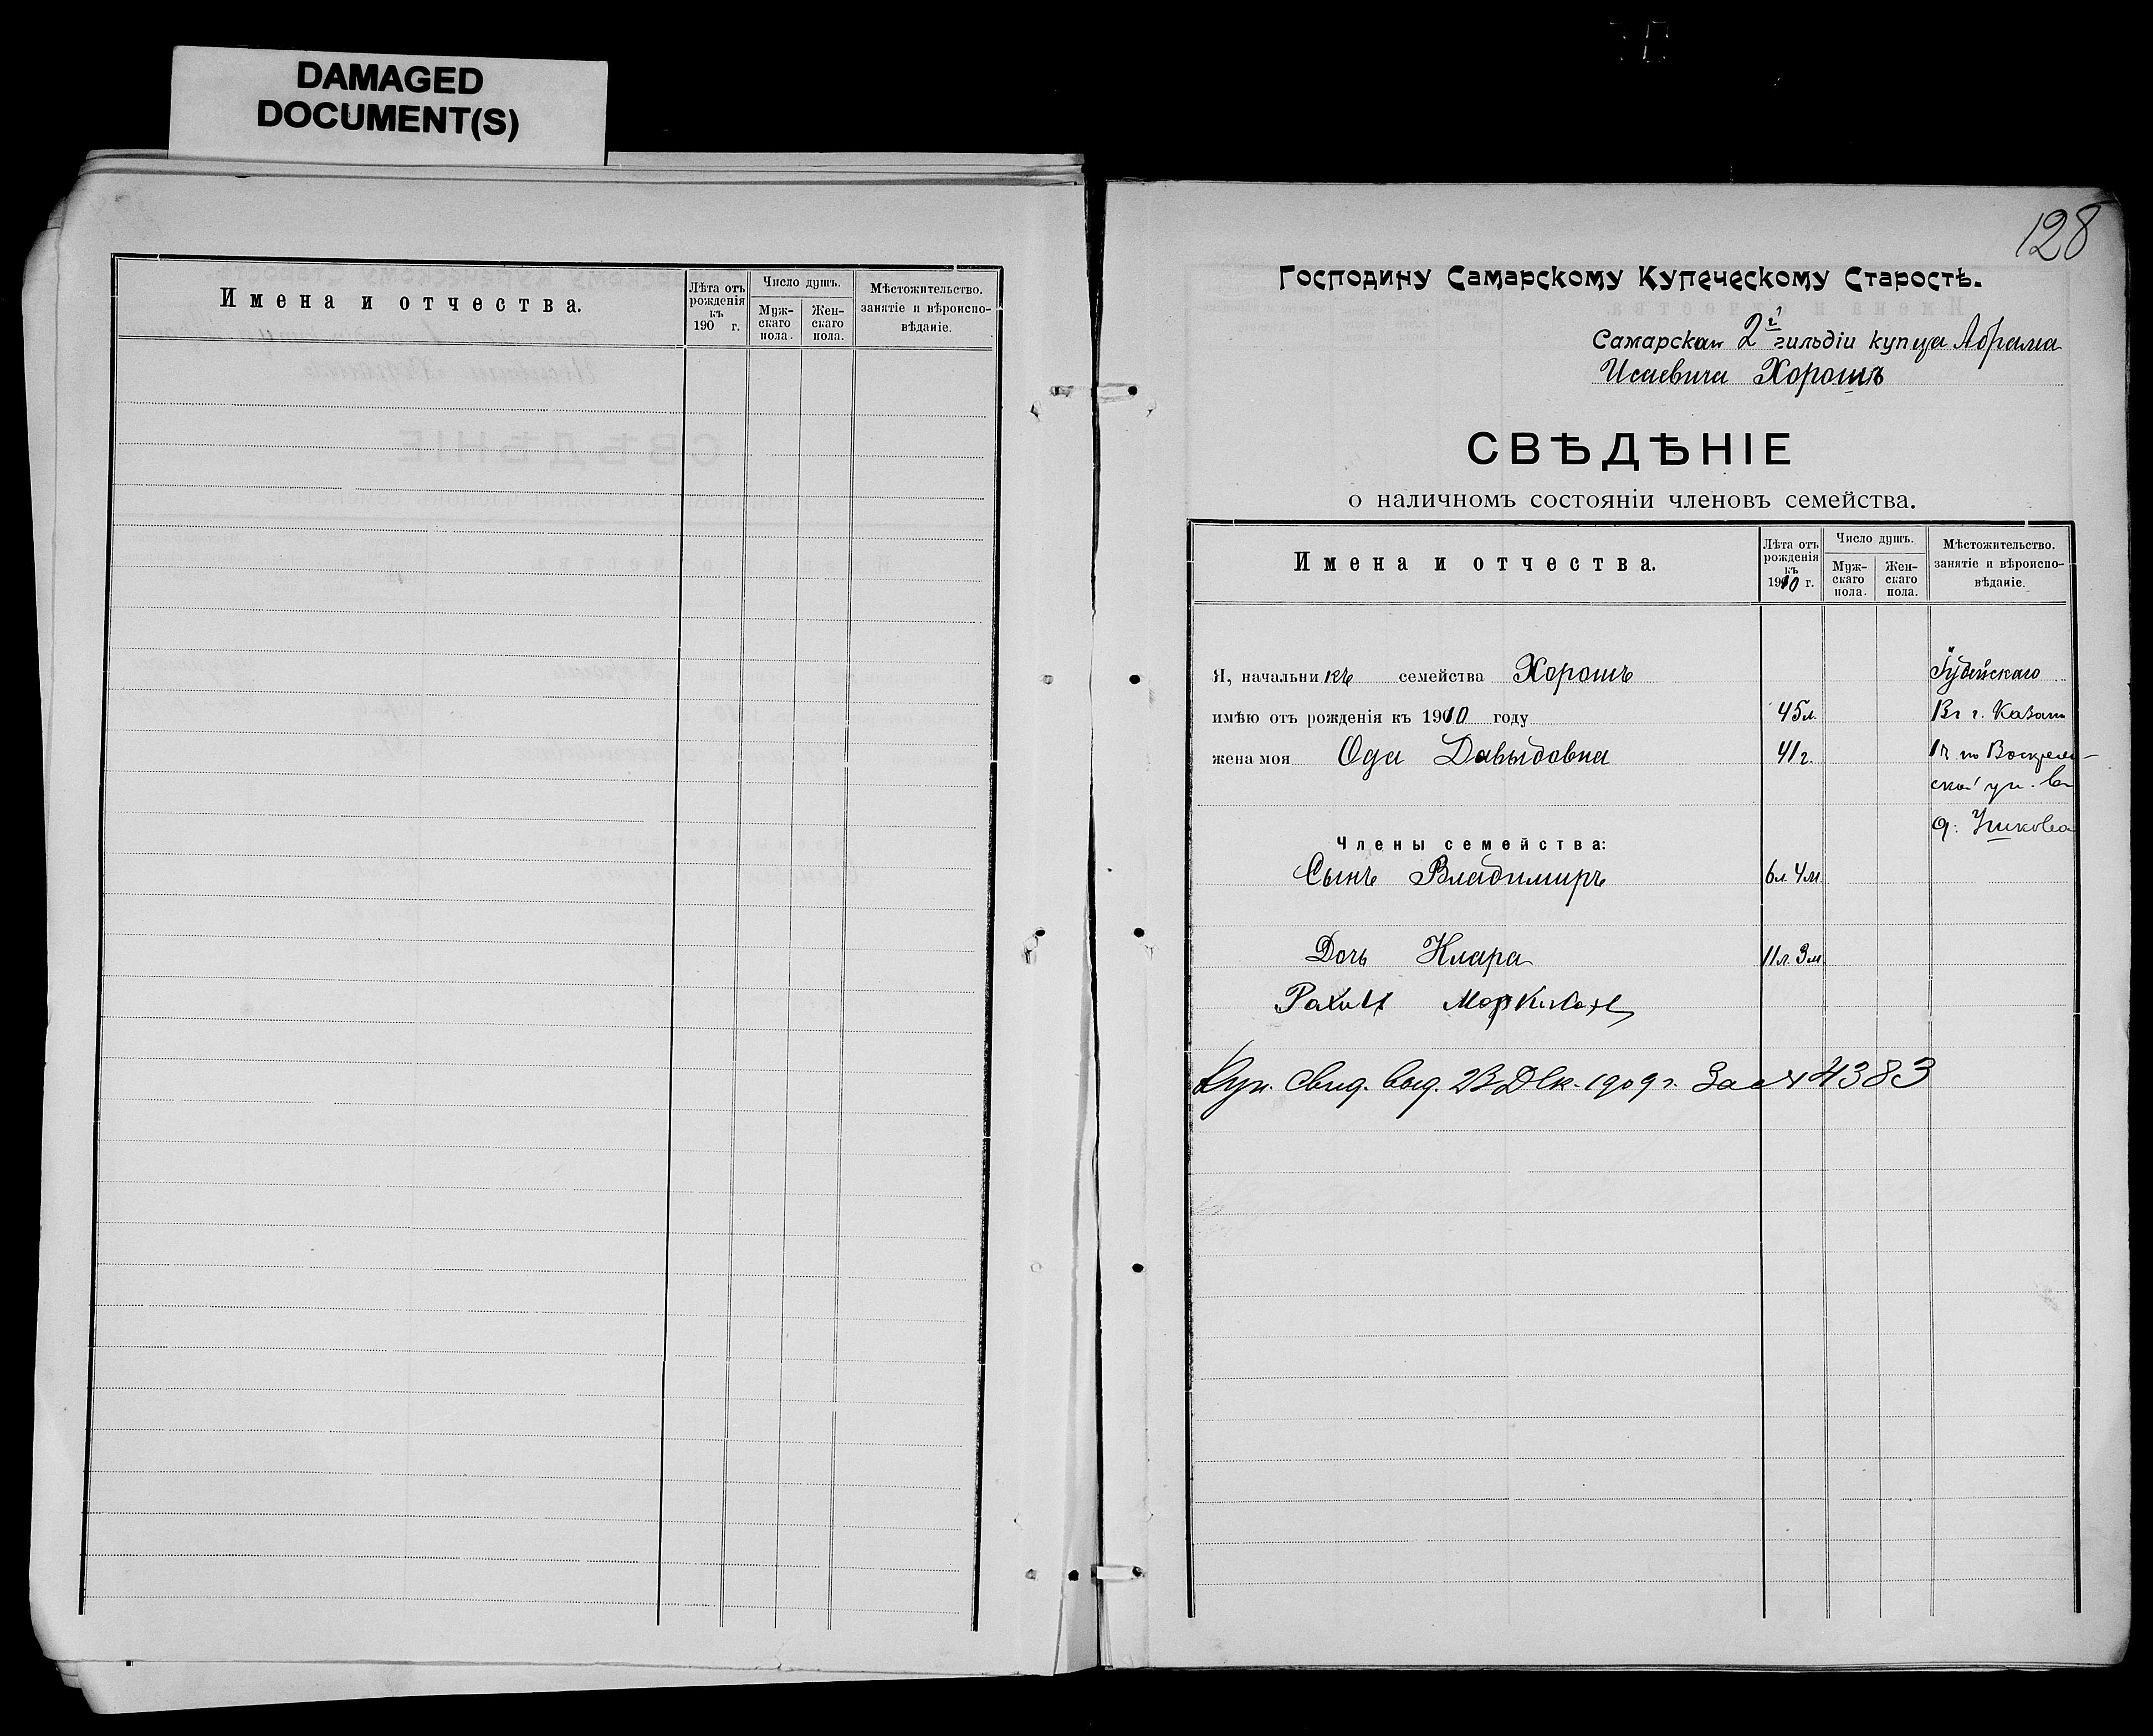 DAMAGED
DOCUMENT(S)
Имена и отчества.
Лѣта отъ рожденія къ 190 г.
Число душъ.
Муж-скаго пола.
Жен-скаго пола.
Мѣстожительство. занятіе и вѣроиспо-вѣданіе.
128
Господину Самарскому Купеческому Старостѣ.
Самарскаго 2й гильдіи купца Абрама
Исаевича Хорошъ
СВѢДѢНІЕ
о наличномъ состояніи членовъ семейства.
Имена и отчества.
Лѣта отъ рожденія къ 1910 г.
Число душъ.
Муж-скаго пола.
Жен-скаго пола.
Мѣстожительство. занятіе и вѣроиспо-вѣданіе.
Я, начальникъ семейства Хорошъ Іудейскаго
имѣю отъ рожденія къ 1910 году 45 л. Въ г. Казани
жена моя Ода Давыдовна 41 г. по Воскресен-
ской ул. въ
д.
Члены семейства:
Сынъ Владимиръ 6 л. 4 м.
Дочь Клара 11 л. 3 м.
Куп. свид. выд. 23 Дек. 1909 г. За № 4383